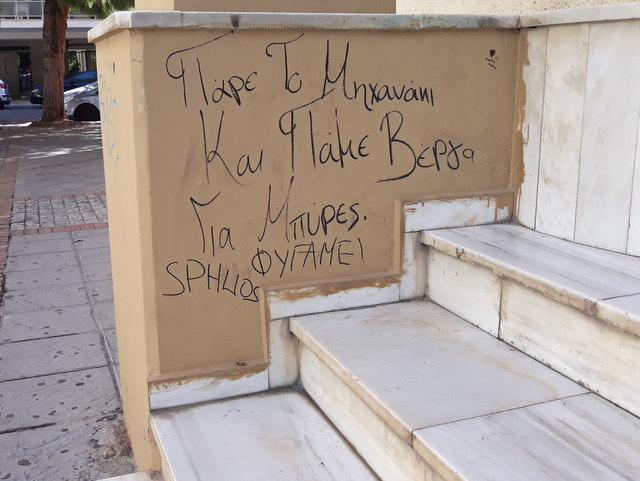 Πάρε Το Μηχανάκι
Και Πάμε Βέργα
Για Μπύρες.
ΦΥΓΑΜΕ!
SPHLIOS